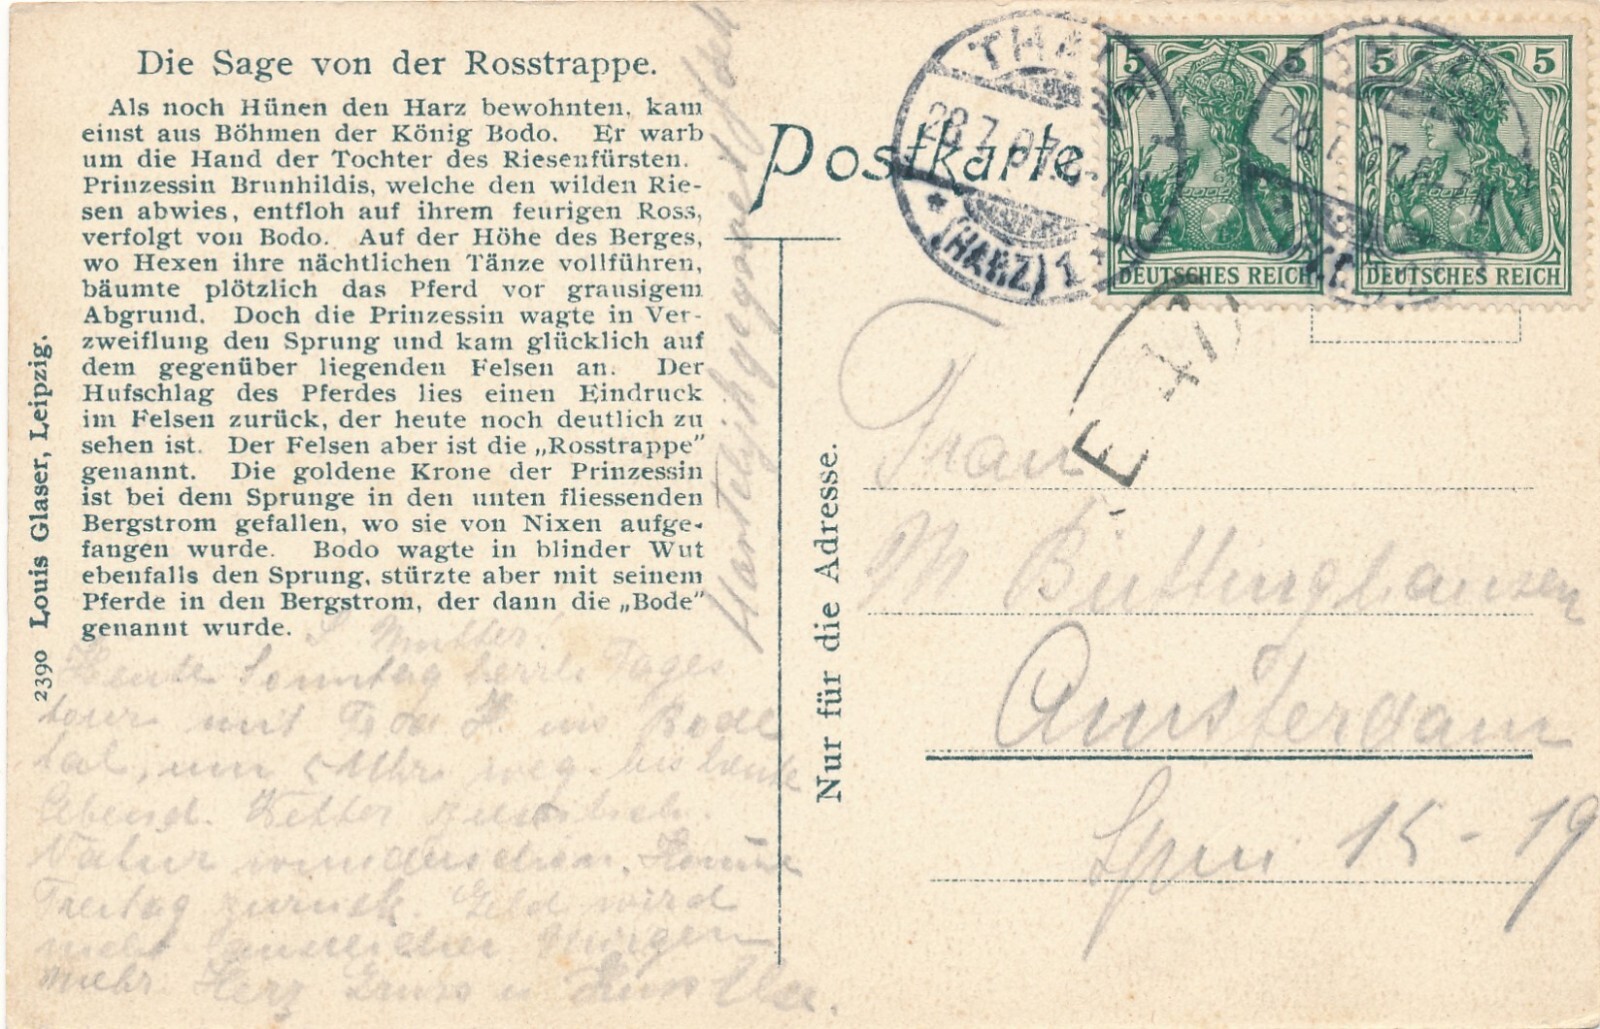 Die Sage von der Rosstrappe.
Als noch Hünen den Harz bewohnten, kam
einst aus Böhmen der König Bodo. Er warb
um die Hand der Tochter des Riesenfürsten.
Prinzessin Brunhildis, welche den wilden Rie-
sen abwies, entfloh auf ihrem feurigen Ross,
verfolgt von Bodo. Auf der Höhe des Berges,
wo Hexen ihre nächtlichen Tänze vollführen,
bäumte plötzlich das Pferd vor grausigem
Abgrund. Doch die Prinzessin wagte in Ver-
zweiflung den Sprung und kam glücklich auf
dem gegenüber liegenden Felsen an. Der
Hufschlag des Pferdes lies einen Eindruck
im Felsen zurück, der heute noch deutlich zu
sehen ist. Der Felsen aber ist die „Rosstrappe"
genannt. Die goldene Krone der Prinzessin
ist bei dem Sprunge in den unten fliessenden
Bergstrom gefallen, wo sie von Nixen aufge-
fangen wurde. Bodo wagte in blinder Wut
ebenfalls den Sprung, stürzte aber mit seinem
Pferde in den Bergstrom, der dann die „Bode"
genannt wurde.
2390 Louis Glaser, Leipzig.
Mutter!
Heute Sonntag herrl. Tages
tour mit ins Bode
tal, um 5 Uhr weg. bis heute
Abend. Wetter ziemlich.
Natur wunderschön. Komme
Freitag zurück. Geld wird
nicht ausreichen Morgen
mehr. Herz Gruss u Kuss Else.
Postkarte
Nur für die Adresse.
THALE
28.7.07.
(HARZ) 1
5 5
DEUTSCHES REICH
5 5
DEUTSCHES REICH
Frau
M Büttinghausen
Amsterdam
Spui 15-19